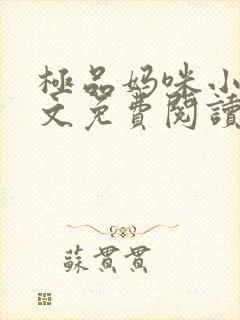 極品妈咪小
文免費閱讀
蘇貫貫